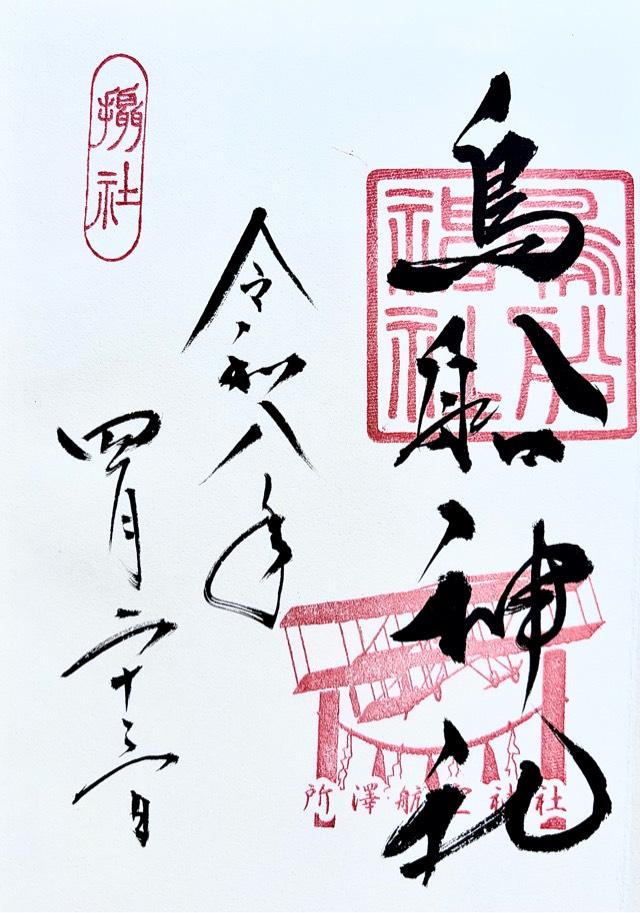 鳥船神社
鳥船神社
所澤航空神社
令和八年
四月二十三日
攝社